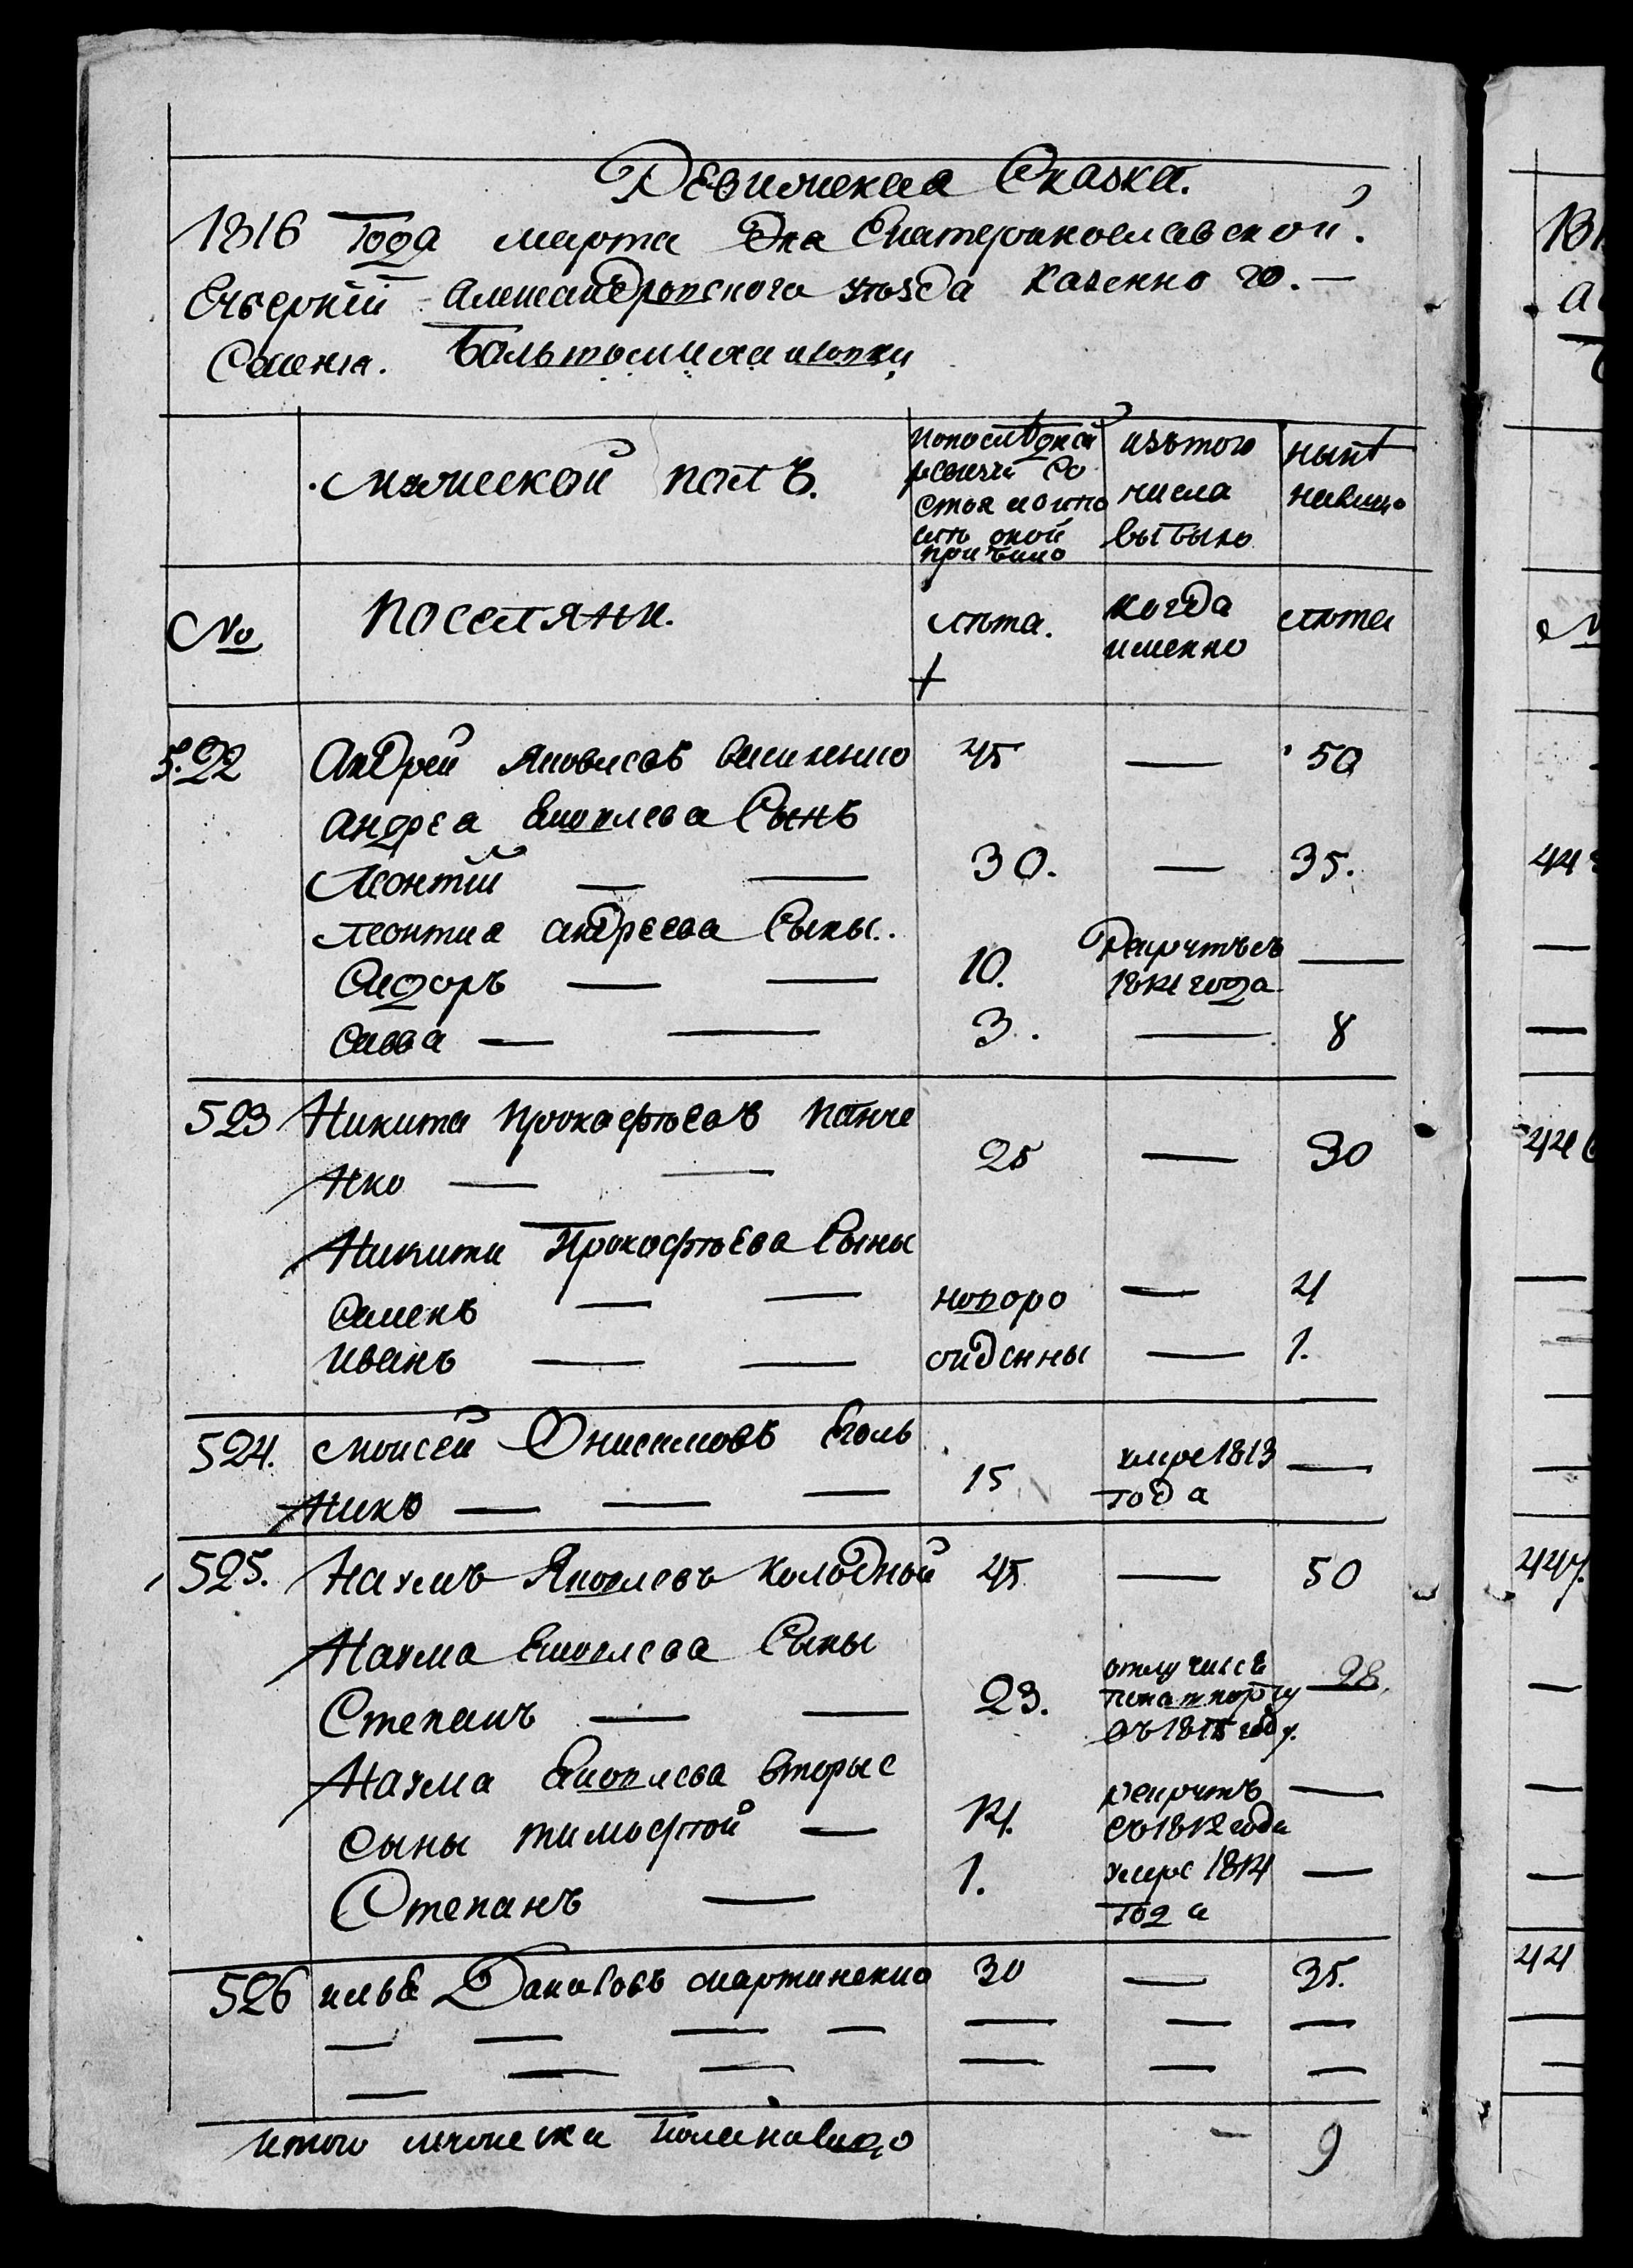 Ревижская Сказка.
1816 Года марта Дня Екатеринославской
Губерніи Александровского уѣзда Казенно го. —
Селенія. Большой
мужеской полъ.
попослѣдней ревизіи состояло и после оной прибыло
изътого числа выбыло
нынѣ налицо
№
поселяни.
лѣта.
когда именно
лѣта
522 Андрей Яковлевъ 45 — 50
андрея Яковлева Сынъ
Леонтій — — 30. — 35.
леонтия андреева Сыны.
Сидоръ — — 10. Рекрутъсъ 1812 года —
Савва — — 3. — 8
523 Никита Прокофьевъ Панче
нко — — 25 — 30
Никити Прокофьева Сыны
Семенъ — — новоро — 4
Иванъ — — жденны — 1.
524. Моисей Онисимовъ Голь
никъ — — — 15 умре 1813 года —
525. Наумъ Яковлевъ Колодный 45 — 50
Наума Яковлева Сыны
Степанъ — — 23. отлучисѣ попашпорту въ 1815 году. 28.
Наума Яковлева вторые
Сыны тимофтей — 14. рекрутъ съ1812 года —
Степанъ — 1. умре 1814 года —
526 илья Даниловъ мартиненко 30 — 35.
— — — — — — —
— — — — — —
итого мужеска пола налицо — 9
18
447.
44